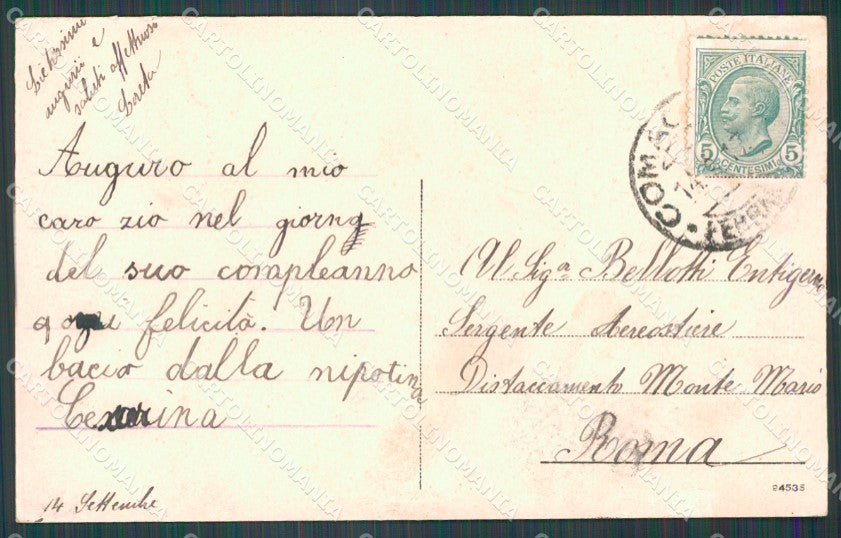 augurii e
saluti affettuosi
Auguro al mio
caro zio nel giorno
del suo compleanno
felicità. Un
bacio dalla nipotina
14 Settembre
POSTE ITALIANE
5 CENTESIMI 5
COMAC
14
Al Sigª Bellotti
Sergente Aereostiere
Distaccamento Monte Mario
Roma
94535
CARTOLINOMANIA